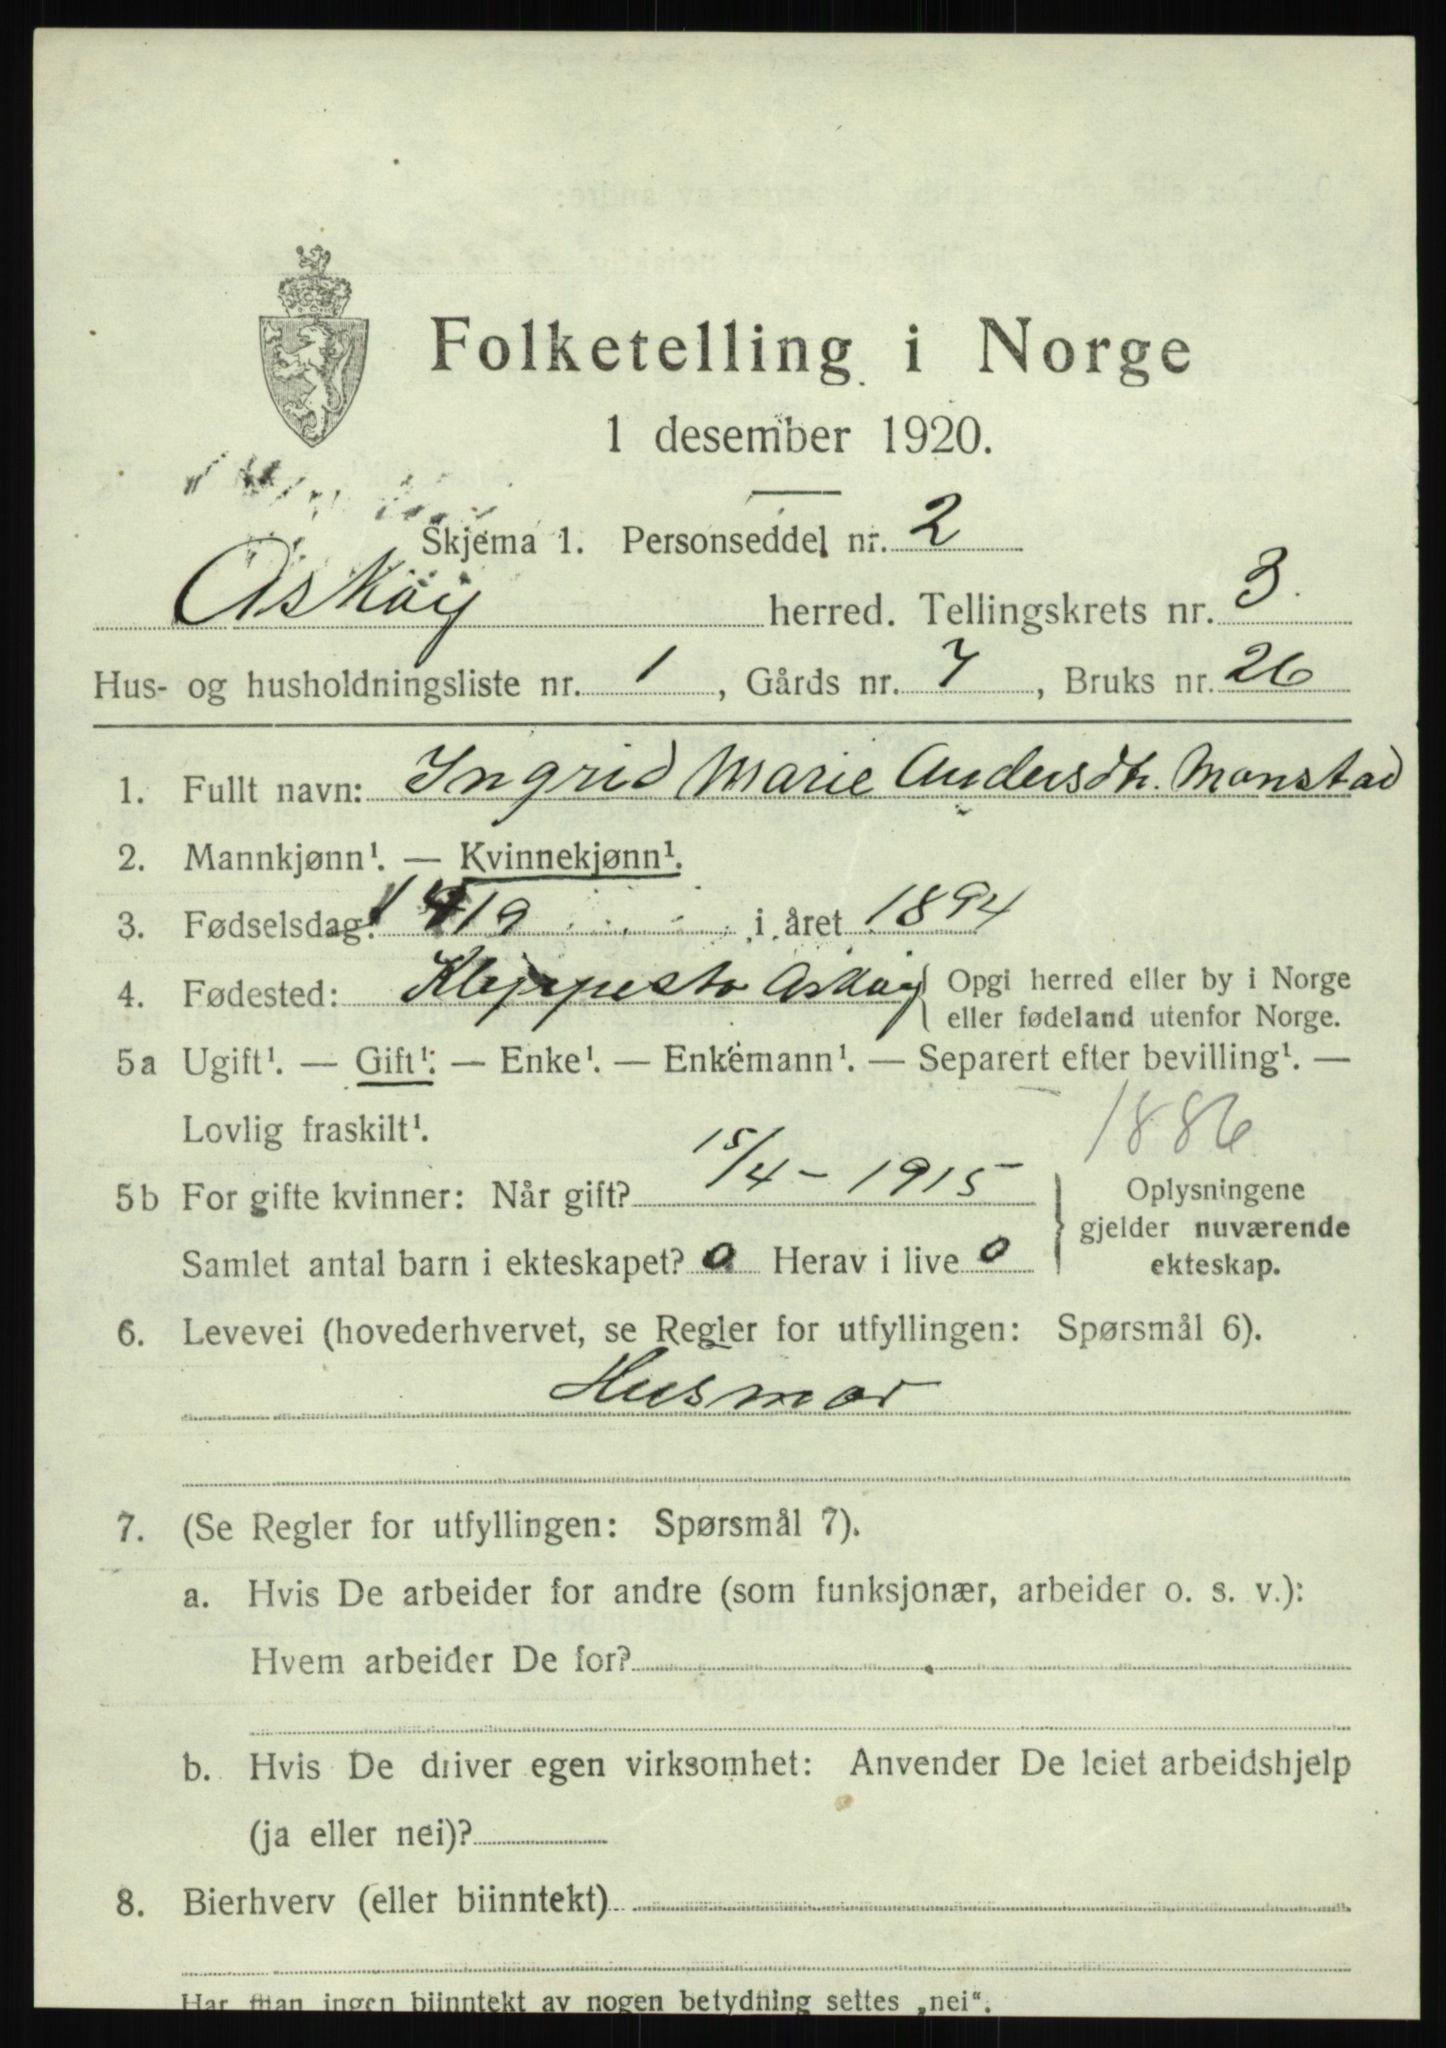 Folketelling i Norge
1 desember 1920.
Skjema 1. Personseddel nr. 2
Askøy herred. Tellingskrets nr. 3.
Hus- og husholdningsliste nr. 1, Gårds nr. 7, Bruks nr. 26
1. Fullt navn: Ingrid Marie Andersdtr. Monstad
2. Mannkjønn¹. — Kvinnekjønn¹.
3. Fødselsdag: 19 i året 1894
4. Fødested: Kleppestø Askøy { Opgi herred eller by i Norge
eller fødeland utenfor Norge.
5a Ugift¹. — Gift¹. — Enke¹. — Enkemann¹. — Separert efter bevilling¹. —
Lovlig fraskilt¹.
1886
5b For gifte kvinner: Når gift? 15/4 - 1915
Samlet antal barn i ekteskapet? 0 Herav i live 0
} Oplysningene
gjelder nuværende
ekteskap.
6. Levevei (hovederhvervet, se Regler for utfyllingen: Spørsmål 6).
Husmor
7. (Se Regler for utfyllingen: Spørsmål 7).
a. Hvis De arbeider for andre (som funksjonær, arbeider o. s. v.):
Hvem arbeider De for?
b. Hvis De driver egen virksomhet: Anvender De leiet arbeidshjelp
(ja eller nei)?
8. Bierhverv (eller biinntekt)
Har man ingen biinntekt av nogen betydning settes „nei“.